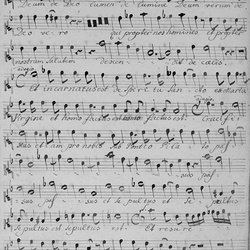 Deum de Deo Lumen de Lumine Deum verum de
Deo vero qui propter nos homines et propter
nostram salutem descendit de coelis
Et incarnatus est de Spiritu San
Virgine et homo factus est Crucifi
xus etiam pro nobis Pontio Pilato pas
sus pas
sus pas sus et sepultus est Se pultus
sepultus est sepultus est Et resurre